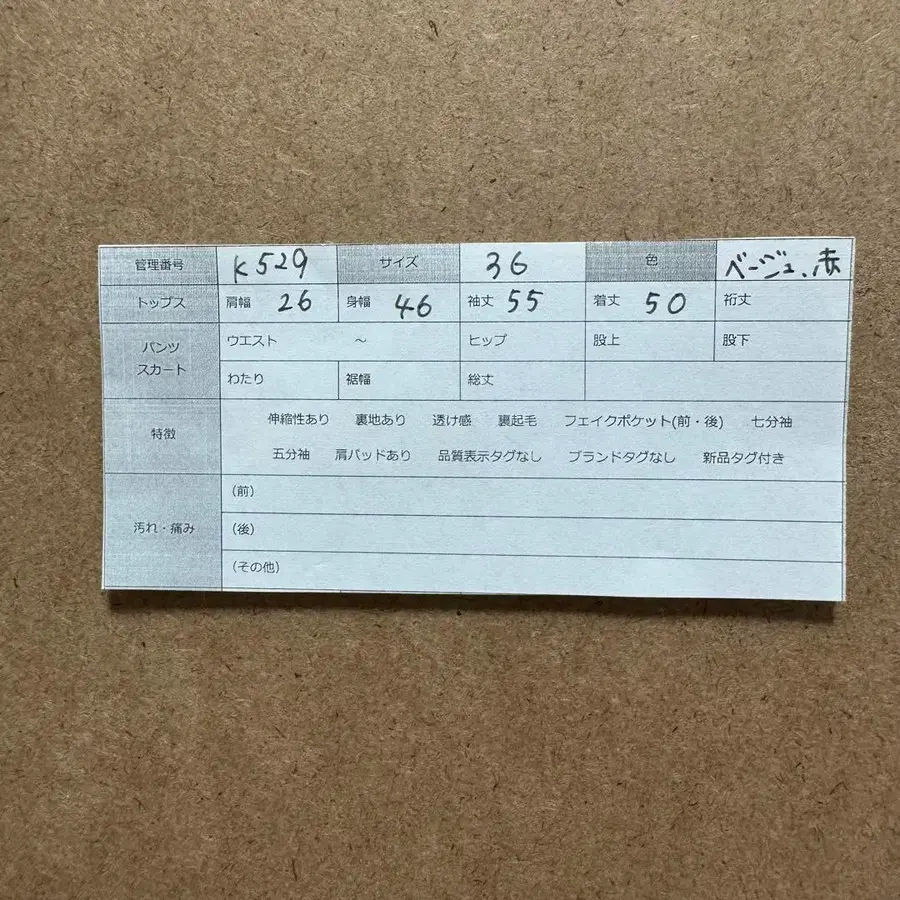 管理番号 K529 サイズ 36 色 ベージュ、赤
トップス 肩幅 26 身幅 46 袖丈 55 着丈 50 裄丈
パンツ スカート ウエスト ～ ヒップ 股上 股下
わたり 裾幅 総丈
特徴 伸縮性あり 裏地あり 透け感 裏起毛 フェイクポケット(前・後) 七分袖
五分袖 肩パッドあり 品質表示タグなし ブランドタグなし 新品タグ付き
汚れ・痛み (前)
(後)
(その他)